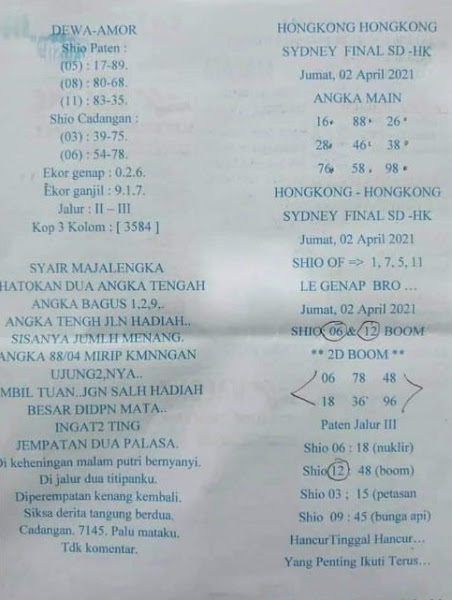 DEWA-AMOR
Shio Paten :
(05) : 17-89.
(08) : 80-68.
(11) : 83-35.
Shio Cadangan :
(03) : 39-75.
(06) : 54-78.
Ekor genap : 0.2.6.
Ekor ganjil : 9.1.7.
Jalur : II – III
Kop 3 Kolom : [ 3584 ]
SYAIR MAJALENGKA
HATOKAN DUA ANGKA TENGAH
ANGKA BAGUS 1,2,9,.
ANGKA TENGH JLN HADIAH..
SISANYA JUMLH MENANG.
ANGKA 88/04 MIRIP KMNNGAN
UJUNG2,NYA..
MBIL TUAN..JGN SALH HADIAH
BESAR DIDPN MATA..
INGAT2 TING
JEMPATAN DUA PALASA.
Di keheningan malam putri bernyanyi.
Di jalur dua titipanku.
Diperempatan kenang kembali.
Siksa derita tangung berdua.
Cadangan. 7145. Palu mataku.
Tdk komentar.
HONGKONG HONGKONG
SYDNEY FINAL SD -HK
Jumat, 02 April 2021
ANGKA MAIN
16* 88* 26*
28* 46* 38*
76* 58* 98*
HONGKONG - HONGKONG
SYDNEY FINAL SD -HK
Jumat, 02 April 2021
SHIO OF => 1, 7, 5, 11
LE GENAP BRO …
Jumat, 02 April 2021
SHIO 06 & 12 BOOM
** 2D BOOM **
06 78 48
18 36 96
Paten Jalur III
Shio 06 : 18 (nuklir)
Shio 12 : 48 (boom)
Shio 03 ; 15 (petasan
Shio 09 : 45 (bunga api)
HancurTinggal Hancur…
Yang Penting Ikuti Terus…